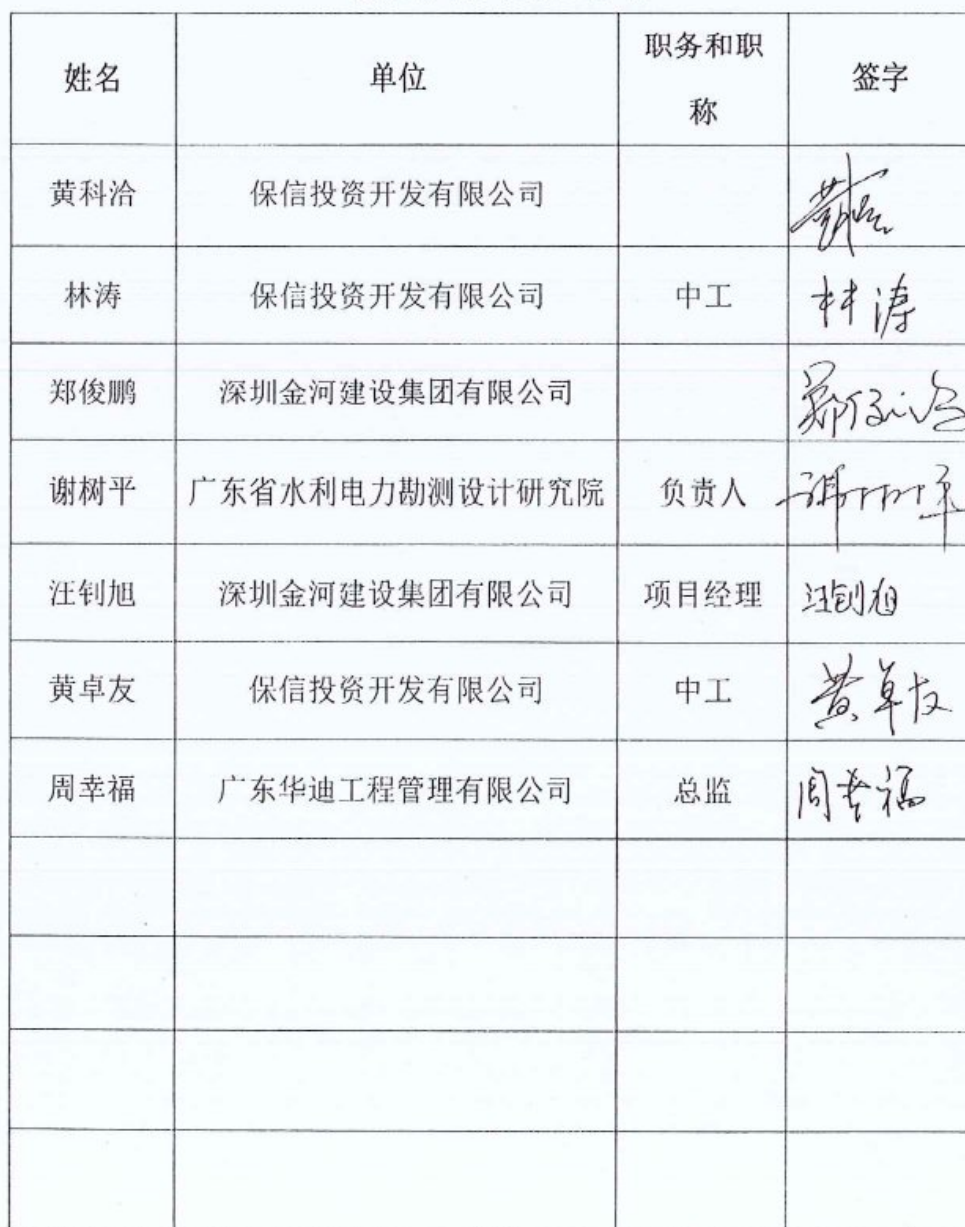 姓名 单位 职务和职称 签字
黄科洽 保信投资开发有限公司
林涛 保信投资开发有限公司 中工 林涛
郑俊鹏 深圳金河建设集团有限公司
谢树平 广东省水利电力勘测设计研究院 负责人 谢树平
汪钊旭 深圳金河建设集团有限公司 项目经理 汪钊旭
黄卓友 保信投资开发有限公司 中工 黄卓友
周幸福 广东华迪工程管理有限公司 总监 周幸福